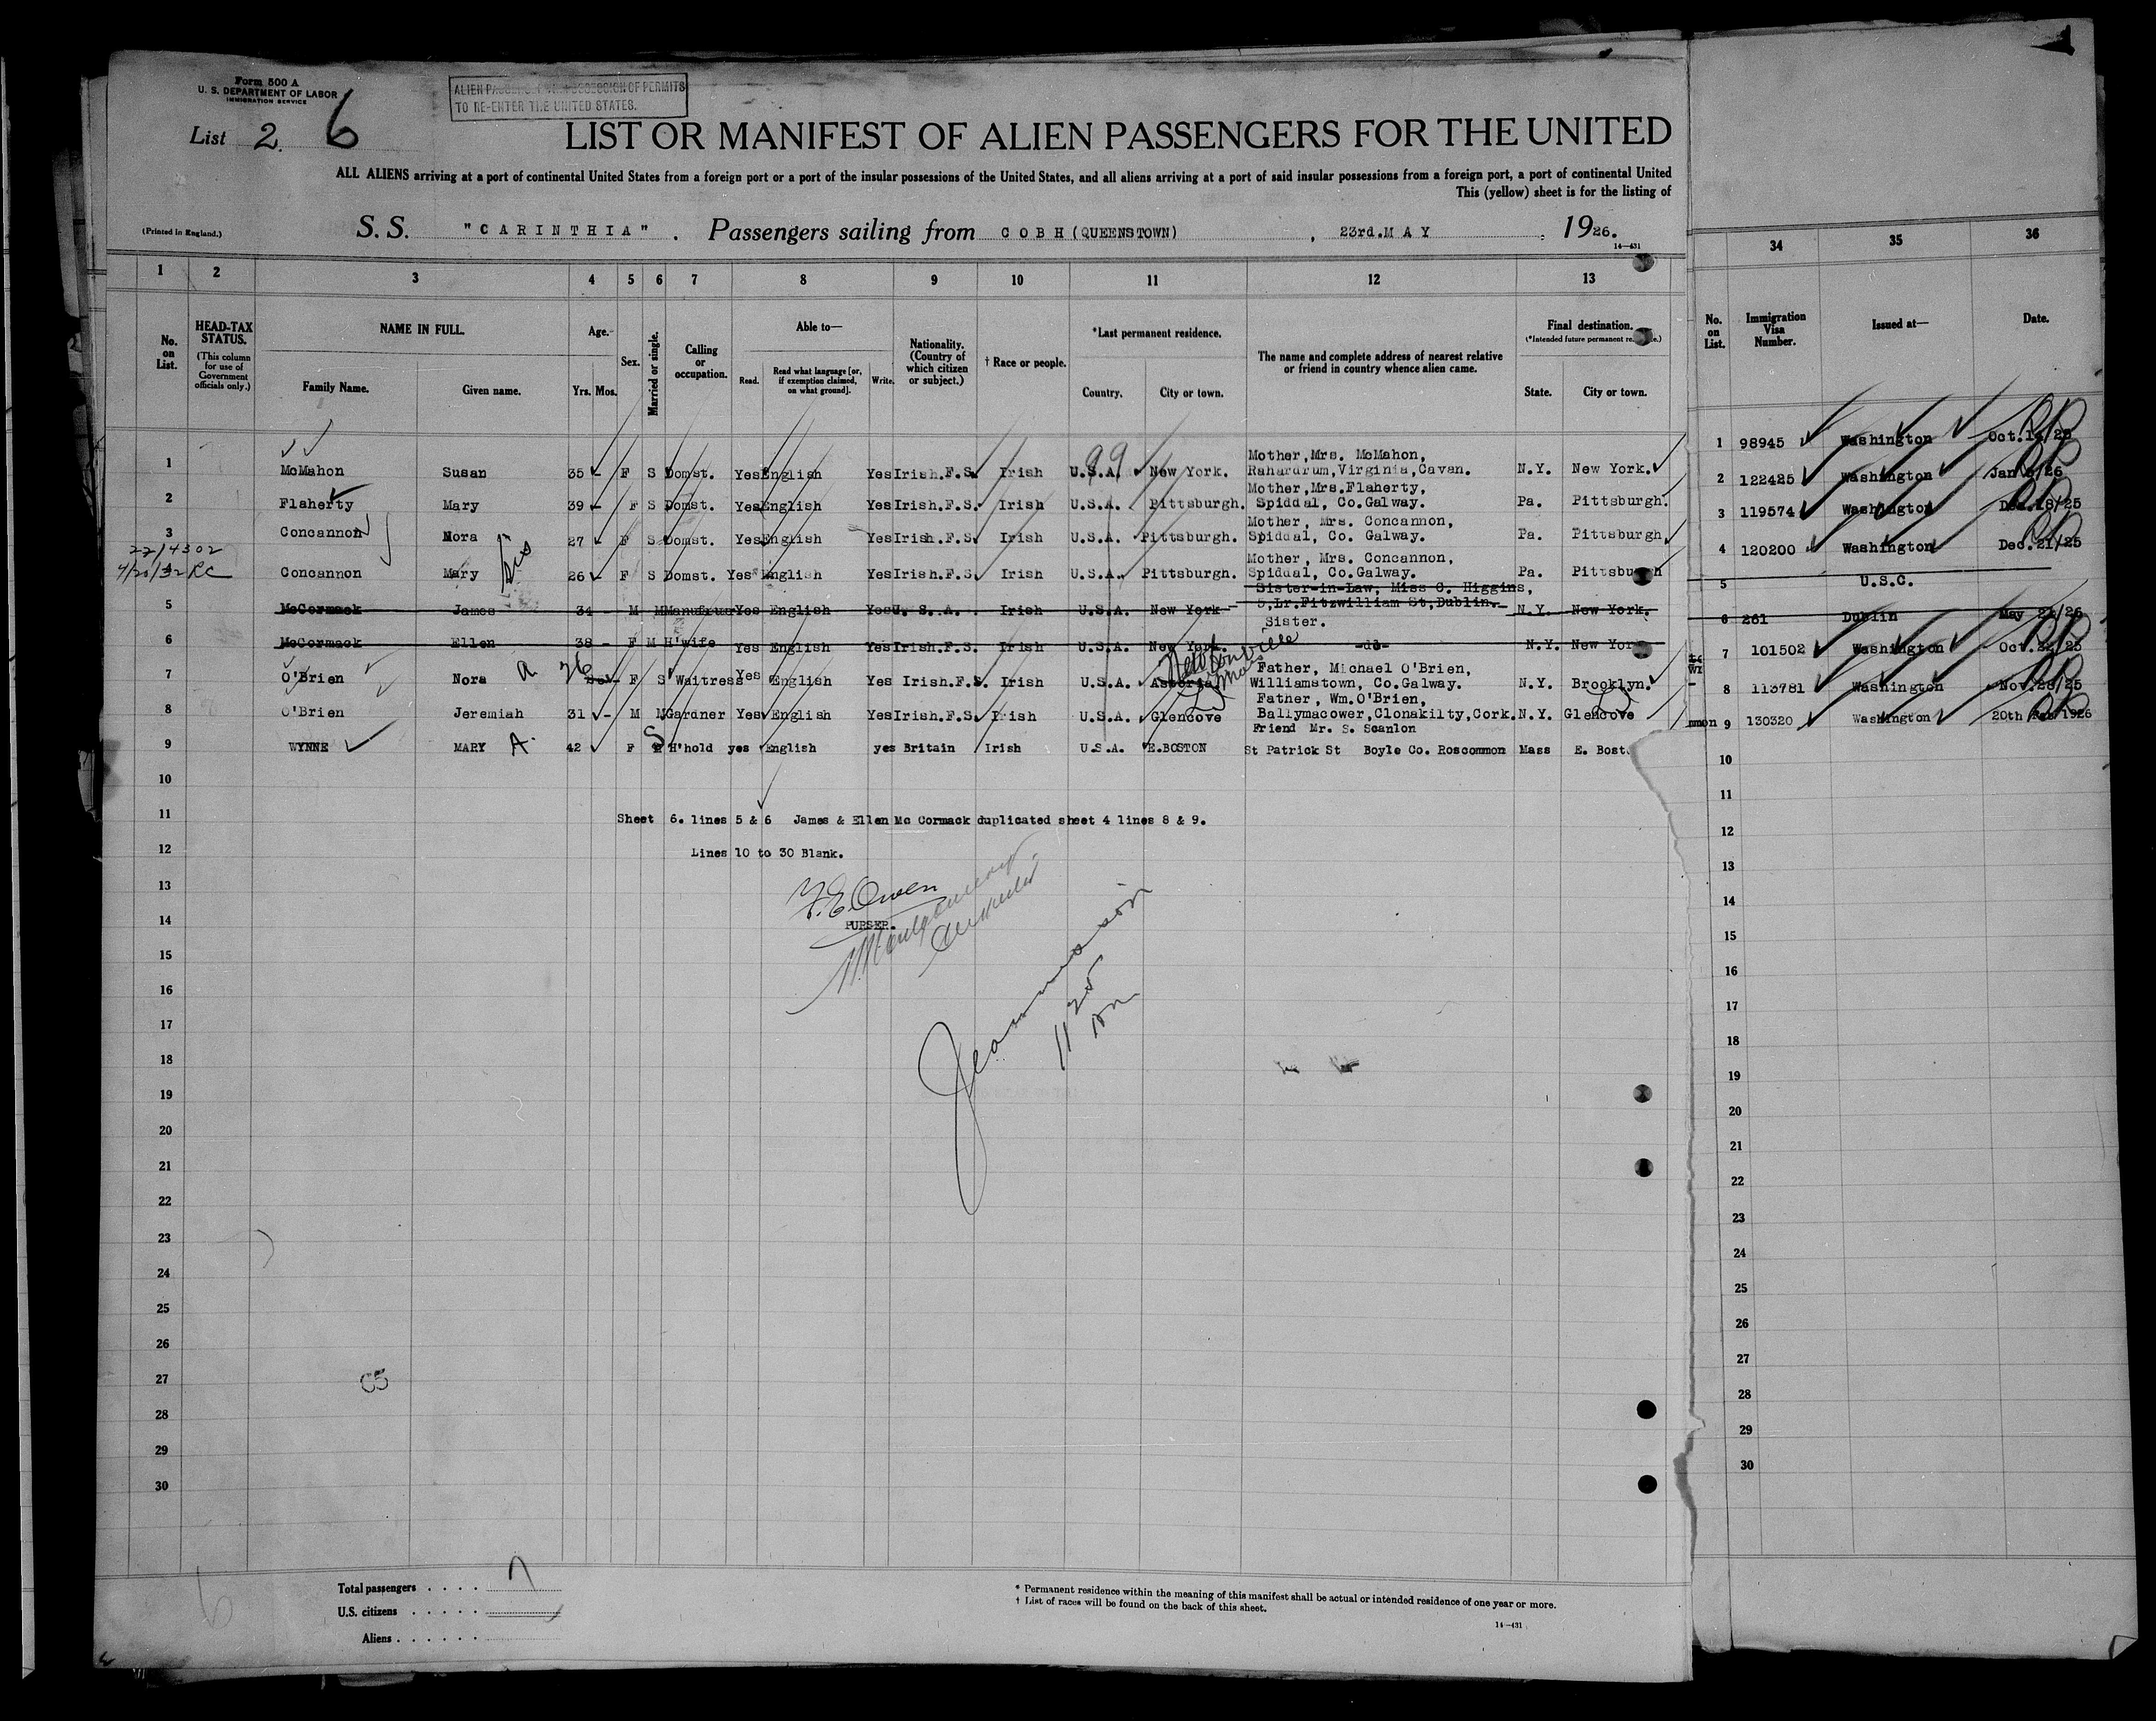 Form 500 A
U. S. DEPARTMENT OF LABOR
IMMIGRATION SERVICE
List 2. 6
ALIEN PASSENGERS IN POSSESSION OF PERMITS
TO RE-ENTER THE UNITED STATES.
LIST OR MANIFEST OF ALIEN PASSENGERS FOR THE UNITED
ALL ALIENS arriving at a port of continental United States from a foreign port or a port of the insular possessions of the United States, and all aliens arriving at a port of said insular possessions from a foreign port, a port of continental United
This (yellow) sheet is for the listing of
(Printed in England.)
S. S. "CARINTHIA". Passengers sailing from COBH (QUEENSTOWN), 23rd. MAY 1926.
14—431
1 2 3 4 5 6 7 8 9 10 11 12 13 34 35 36
No. on List.
HEAD-TAX STATUS.
(This column for use of Government officials only.)
NAME IN FULL.
Family Name. Given name.
Age.
Yrs. Mos.
Sex.
Married or single.
Calling or occupation.
Able to—
Read. Read what language [or, if exemption claimed, on what ground]. Write.
Nationality. (Country of which citizen or subject.)
† Race or people.
*Last permanent residence.
Country. City or town.
The name and complete address of nearest relative or friend in country whence alien came.
Final destination.
State. City or town.
No. on List.
Immigration Visa Number.
Issued at—
Date.
99
1 McMahon Susan 35 - F S Domst. Yes English Yes Irish.F.S. Irish U.S.A. New York. Mother, Mrs. McMahon, Rahardrum, Virginia, Cavan. N.Y. New York. 1 98945 Washington Oct.14/25
2 Flaherty Mary 39 - F S Domst. Yes English Yes Irish.F.S. Irish U.S.A. Pittsburgh. Mother, Mrs. Flaherty, Spiddal, Co.Galway. Pa. Pittsburgh. 2 122425 Washington Jan 8/26
3 Concannon Nora 27 F S Domst. Yes English Yes Irish.F.S. Irish U.S.A. Pittsburgh. Mother, Mrs. Concannon, Spiddal, Co. Galway. Pa. Pittsburgh 3 119574 Washington Dec.18/25
22/4302
4/20/32 RC
Sis
Concannon Mary 26 - F S Domst. Yes English Yes Irish.F.S. Irish U.S.A. Pittsburgh. Mother, Mrs. Concannon, Spiddal, Co.Galway. Pa. Pittsburgh 4 120200 Washington Dec.21/25
5 McCormack James 34 - M M Yes English Yes U. S. A. Irish U.S.A. New York Sister-in-Law, Miss C. Higgins, 5,Lr.Fitzwilliam St,Dublin. N.Y. New York. 5 U.S.C.
6 McCormack Ellen 38 - F M H'wife Yes English Yes Irish.F.S. Irish U.S.A. New York. Sister. -do- N.Y. New York 6 261 Dublin May 21/26
7 O'Brien Nora a 26 F S Waitress Yes English Yes Irish.F.S. Irish U.S.A. Astoria Newtonville Mass Father, Michael O'Brien, Williamstown, Co.Galway. N.Y. Brooklyn. 7 101502 Washington Oct.22/25
8 O'Brien Jeremiah 31 - M M Gardner Yes English Yes Irish.F.S. Irish U.S.A. Glencove Father, Wm.O'Brien, Ballymacower, Clonakilty, Cork. N.Y. Glencove 8 113781 Washington Nov.28/25
9 WYNNE MARY A. 42 F S H'hold yes English yes Britain Irish U.S.A. E.BOSTON Friend Mr. S. Scanlon St Patrick St Boyle Co. Roscommon Mass E. Bost mmon 9 130320 Washington 20th Feb 1926
10 10
11 Sheet 6. lines 5 & 6 James & Ellen Mc Cormack duplicated sheet 4 lines 8 & 9. 11
12 Lines 10 to 30 Blank. 12
13 13
Y.E. Owen
14 PURSER. 14
15 15
16 16
11 25 AM
17 17
18 18
19 19
20 20
21 21
22 22
23 23
24 24
25 25
26 26
27 C5 27
28 28
29 29
30 30
Total passengers . . . . 7
U.S. citizens . . . . .
Aliens . . . . . .
6
* Permanent residence within the meaning of this manifest shall be actual or intended residence of one year or more.
† List of races will be found on the back of this sheet.
14—431